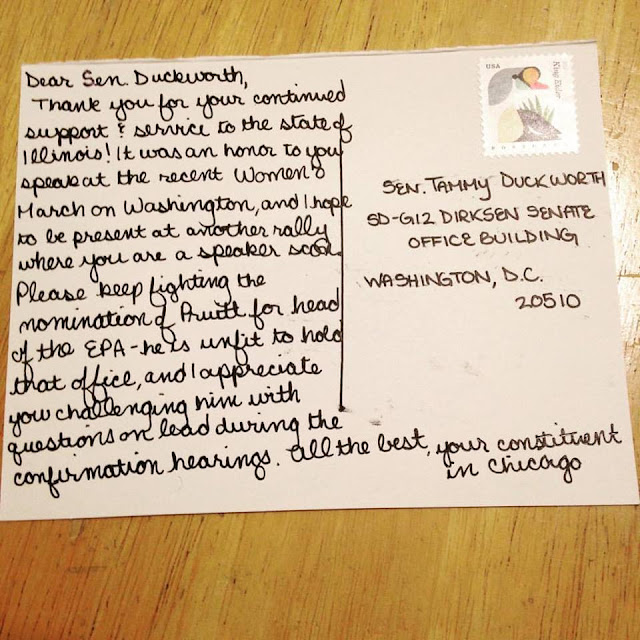 Dear Sen. Duckworth,
Thank you for your continued
support & service to the state of
Illinois! It was an honor to you
speak at the recent Women's
March on Washington, and I hope
to be present at another rally
where you are a speaker soon.
Please keep fighting the
nomination of Pruitt for head
of the EPA - he is unfit to hold
that office, and I appreciate
you challenging him with
questions on lead during the
confirmation hearings. All the best, your constituent
in Chicago
USA
King Eider
POSTCARD
SEN. TAMMY DUCKWORTH
SD-G12 DIRKSEN SENATE
OFFICE BUILDING
WASHINGTON, D.C.
20510